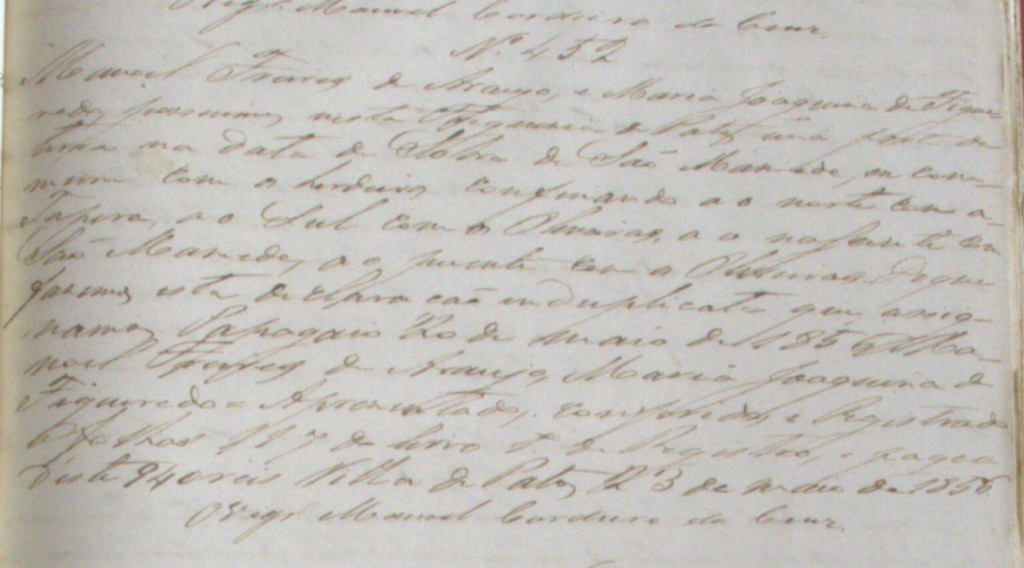 O Vigrº Manoel Cordeiro da Cruz
Nº 452
Manoel Francº de Araujo, e Maria Joaquina de Figue-
redo, possuimos nesta Freguesia de Patos uma parte de
terra na Data de Sobra de São Mamede, em com-
mum com os herdeiros, confinando ao norte com a
Tapera, ao Sul com os Oliveiras, ao nascente com
São Mamede, ao puente com os Oliveiras. De que
fasemos esta declaracão em duplicata que assig-
namos. Papagaio 20 de maio de 1856. Ma-
noel Francº de Araujo, Maria Joaquina de
Figueredo = Apresentado, conferido, e Registrado
a folhas 117 do livro 1º de Registro, e pagou
deste 940 reis Villa de Patos 23 de maio de 1856
O Vigrº Manoel Cordeiro da Cruz